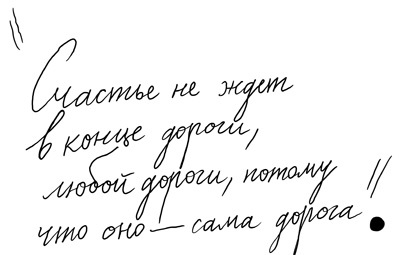 "Счастье не ждет
в конце дороги,
любой дороги, потому
что оно — сама дорога".